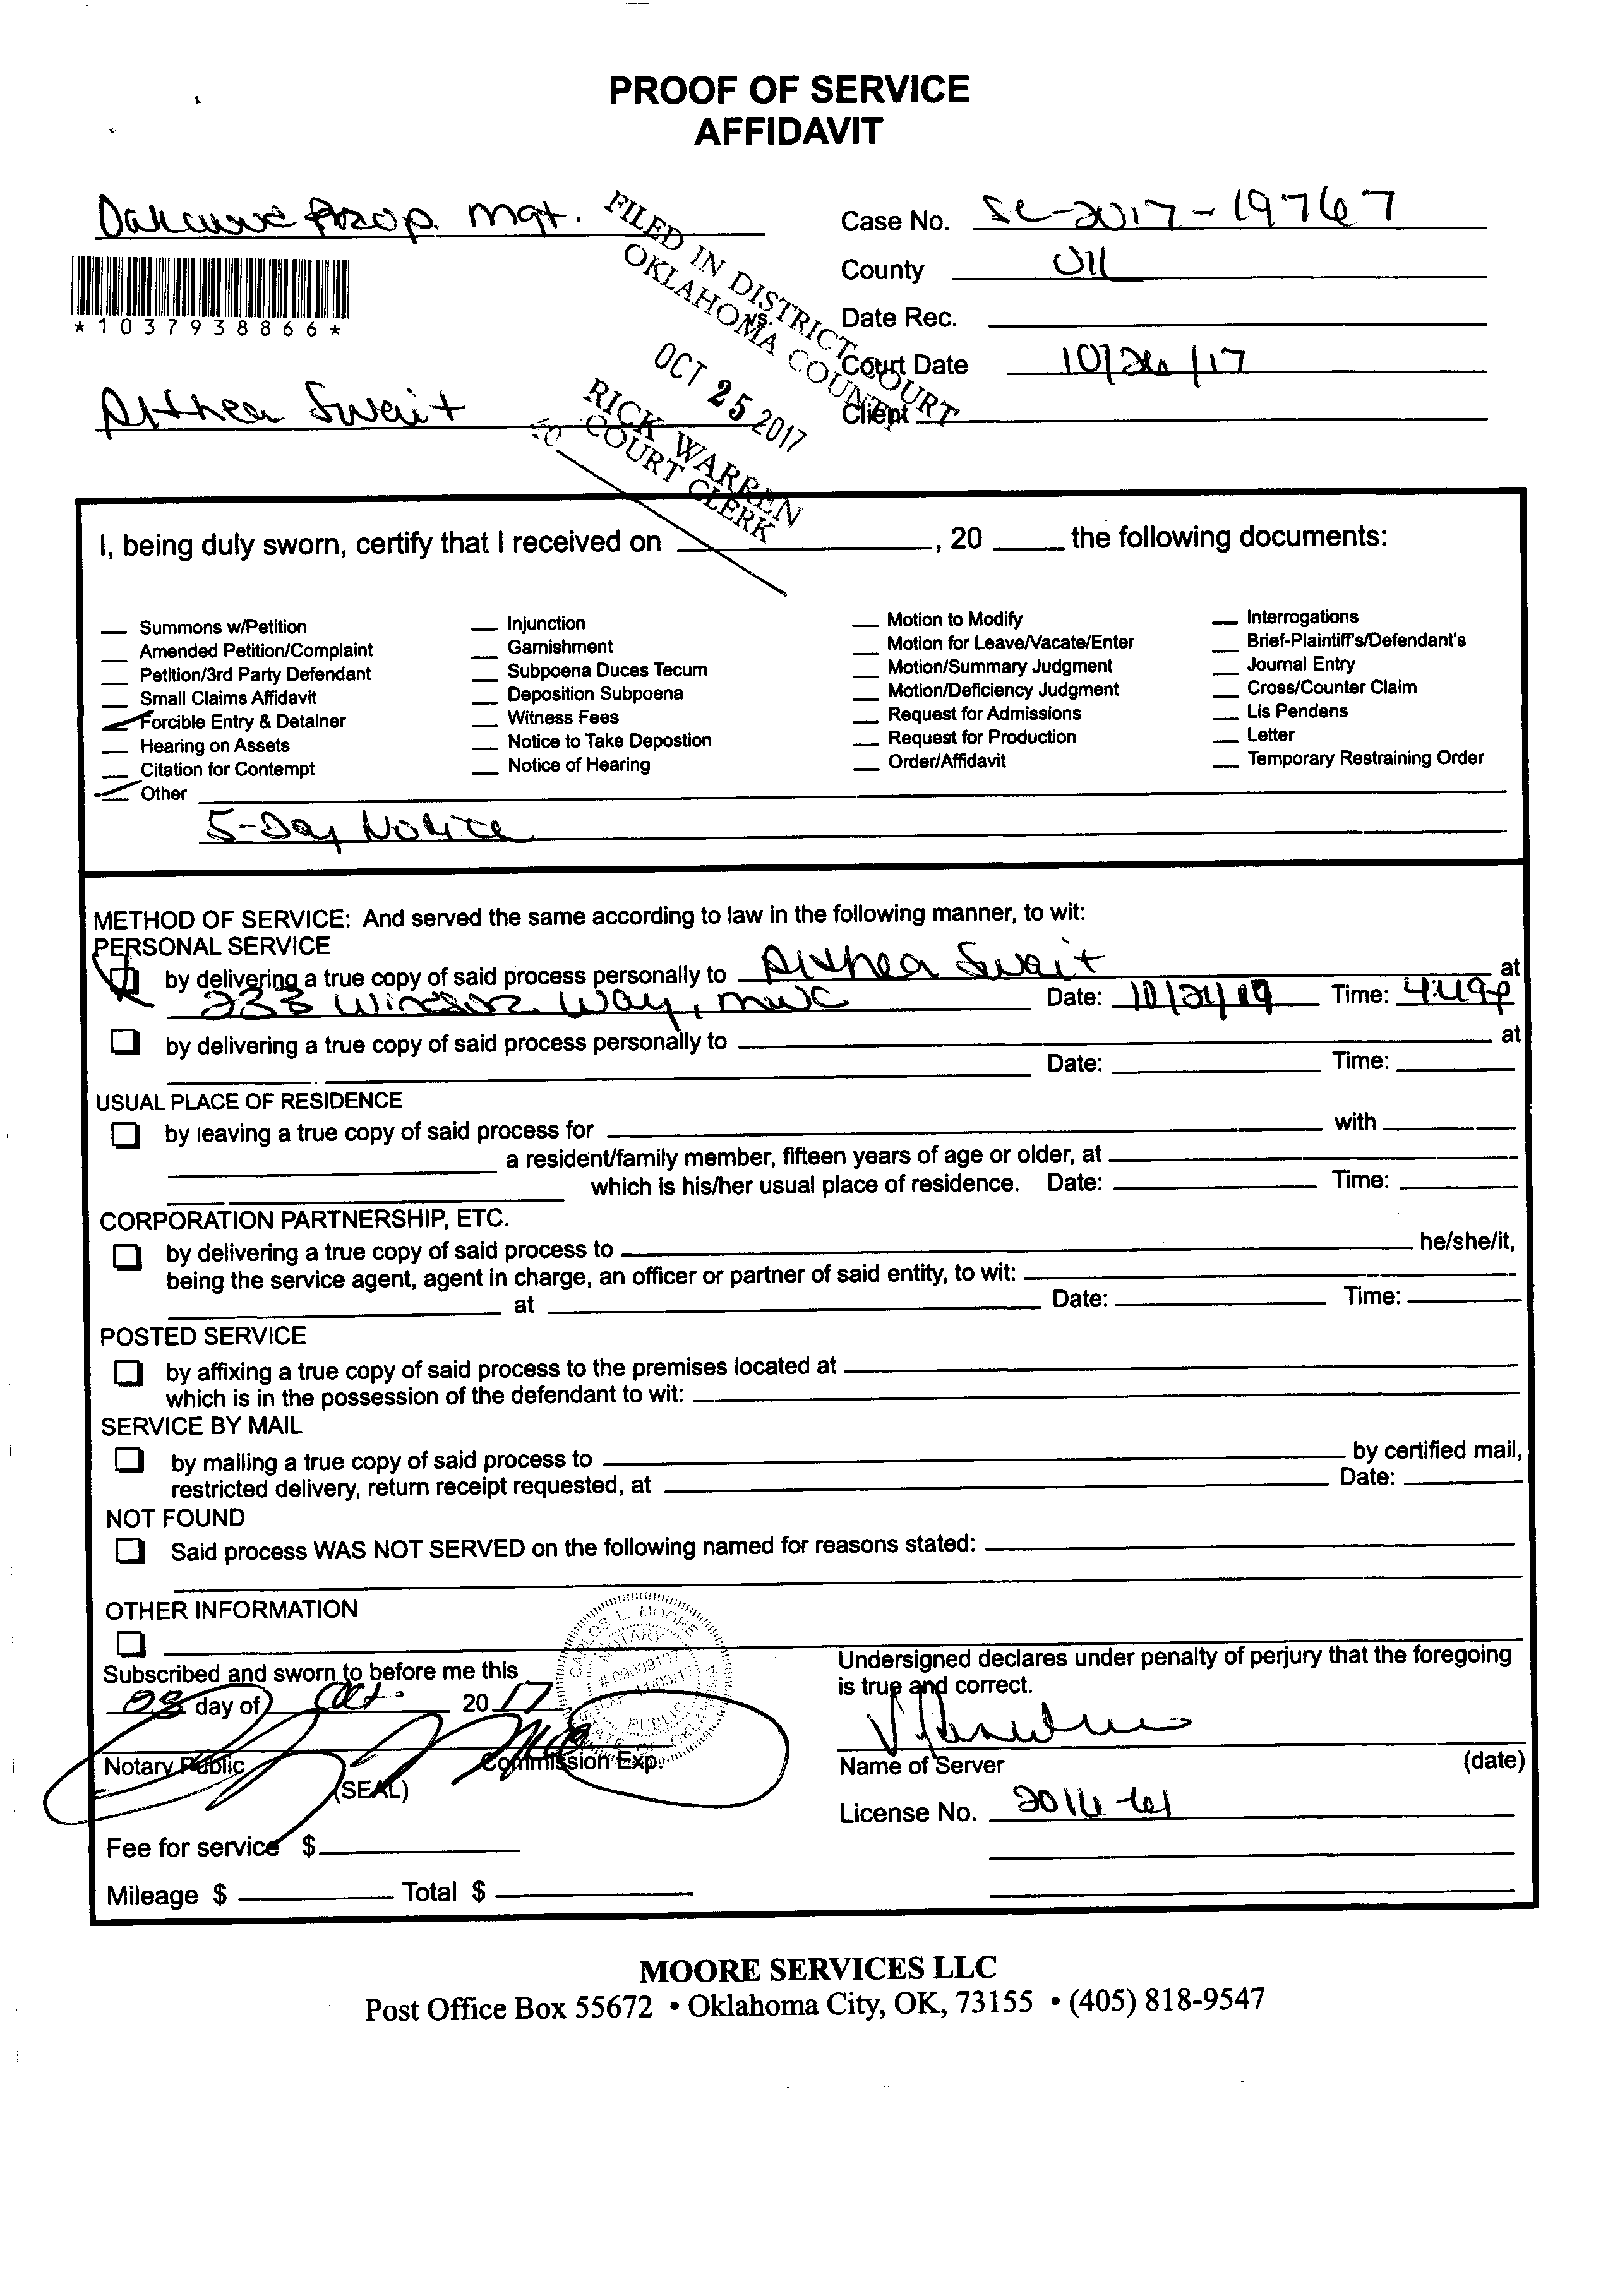 PROOF OF SERVICE
AFFIDAVIT
Prop. Mgt.
Case No. SC-2017-19767
FILED IN DISTRICT COURT
OKLAHOMA COUNTY
County
*1037938866*
vs.
Date Rec.
OCT 25 2017
Court Date 10/26/17
Althea Swait
RICK WARREN
COURT CLERK
Client
I, being duly sworn, certify that I received on ____, 20 ____ the following documents:
Summons w/Petition
Amended Petition/Complaint
Petition/3rd Party Defendant
Small Claims Affidavit
Forcible Entry & Detainer
Hearing on Assets
Citation for Contempt
Other
Injunction
Garnishment
Subpoena Duces Tecum
Deposition Subpoena
Witness Fees
Notice to Take Depostion
Notice of Hearing
Motion to Modify
Motion for Leave/Vacate/Enter
Motion/Summary Judgment
Motion/Deficiency Judgment
Request for Admissions
Request for Production
Order/Affidavit
Interrogations
Brief-Plaintiff's/Defendant's
Journal Entry
Cross/Counter Claim
Lis Pendens
Letter
Temporary Restraining Order
5-Day Notice
METHOD OF SERVICE: And served the same according to law in the following manner, to wit:
PERSONAL SERVICE
by delivering a true copy of said process personally to Althea Swait at
233 Windsor Way, MWC Date: Time: 4:49p
by delivering a true copy of said process personally to ____ at
Date: ____ Time: ____
USUAL PLACE OF RESIDENCE
by leaving a true copy of said process for ____ with ____
a resident/family member, fifteen years of age or older, at ____
which is his/her usual place of residence. Date: ____ Time: ____
CORPORATION PARTNERSHIP, ETC.
by delivering a true copy of said process to ____ he/she/it,
being the service agent, agent in charge, an officer or partner of said entity, to wit: ____
at ____ Date: ____ Time: ____
POSTED SERVICE
by affixing a true copy of said process to the premises located at ____
which is in the possession of the defendant to wit: ____
SERVICE BY MAIL
by mailing a true copy of said process to ____ by certified mail,
restricted delivery, return receipt requested, at ____ Date: ____
NOT FOUND
Said process WAS NOT SERVED on the following named for reasons stated: ____
OTHER INFORMATION
CARLOS L. MOORE
NOTARY
# 09009137
EXP. 11/03/17
PUBLIC
STATE OF OKLAHOMA
Subscribed and sworn to before me this
23 day of Oct. 2017
Notary Public
(SEAL)
Commission Exp.
Fee for service $
Mileage $ ____ Total $ ____
Undersigned declares under penalty of perjury that the foregoing
is true and correct.
Name of Server (date)
License No. 2016-61
MOORE SERVICES LLC
Post Office Box 55672 • Oklahoma City, OK, 73155 • (405) 818-9547